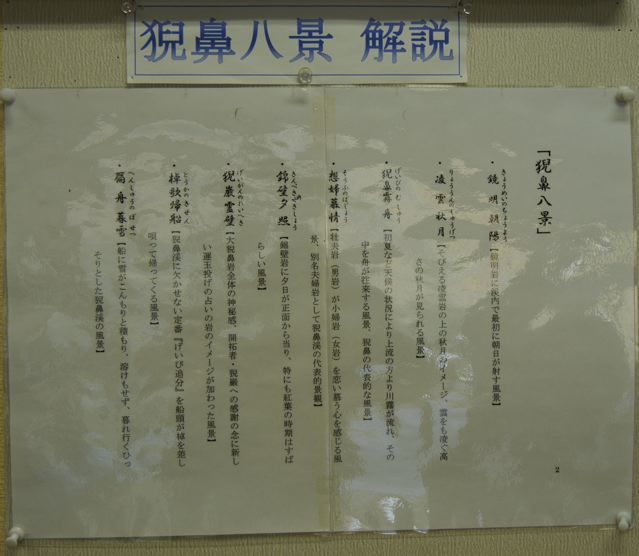 猊鼻八景 解説
「猊鼻八景」
・鏡明朝陽【鏡明岩に渓内で最初に朝日が射す風景】
・凌雲秋月【そびえる凌雲岩の上の秋月のイメージ、雲をも凌ぐ高
さの秋月が見られる風景】
・猊鼻霧舟【初夏など天候の状況により上流の方より川霧が流れ、その
中を舟が往来する風景、猊鼻の代表的な風景】
・想婦慕情【壮夫岩（男岩）が小婦岩（女岩）を恋い慕う心を感じる風
景、別名夫婦岩として猊鼻渓の代表的景観】
・錦壁夕照【錦壁岩に夕日が正面から当り、特にも紅葉の時期はすば
らしい風景】
・猊巌霊壁【大猊鼻岩全体の神秘感、開拓者・猊巌への感謝の念に新し
い運玉投げの占いの岩のイメージが加わった風景】
・棹歌帰船【猊鼻渓に欠かせない定番『げいび追分』を船頭が棹を差し
唄って帰ってくる風景】
・扁舟暮雪【船に雪がこんもりと積もり、溶けもせず、暮れ行くひっ
そりとした猊鼻渓の風景】
2